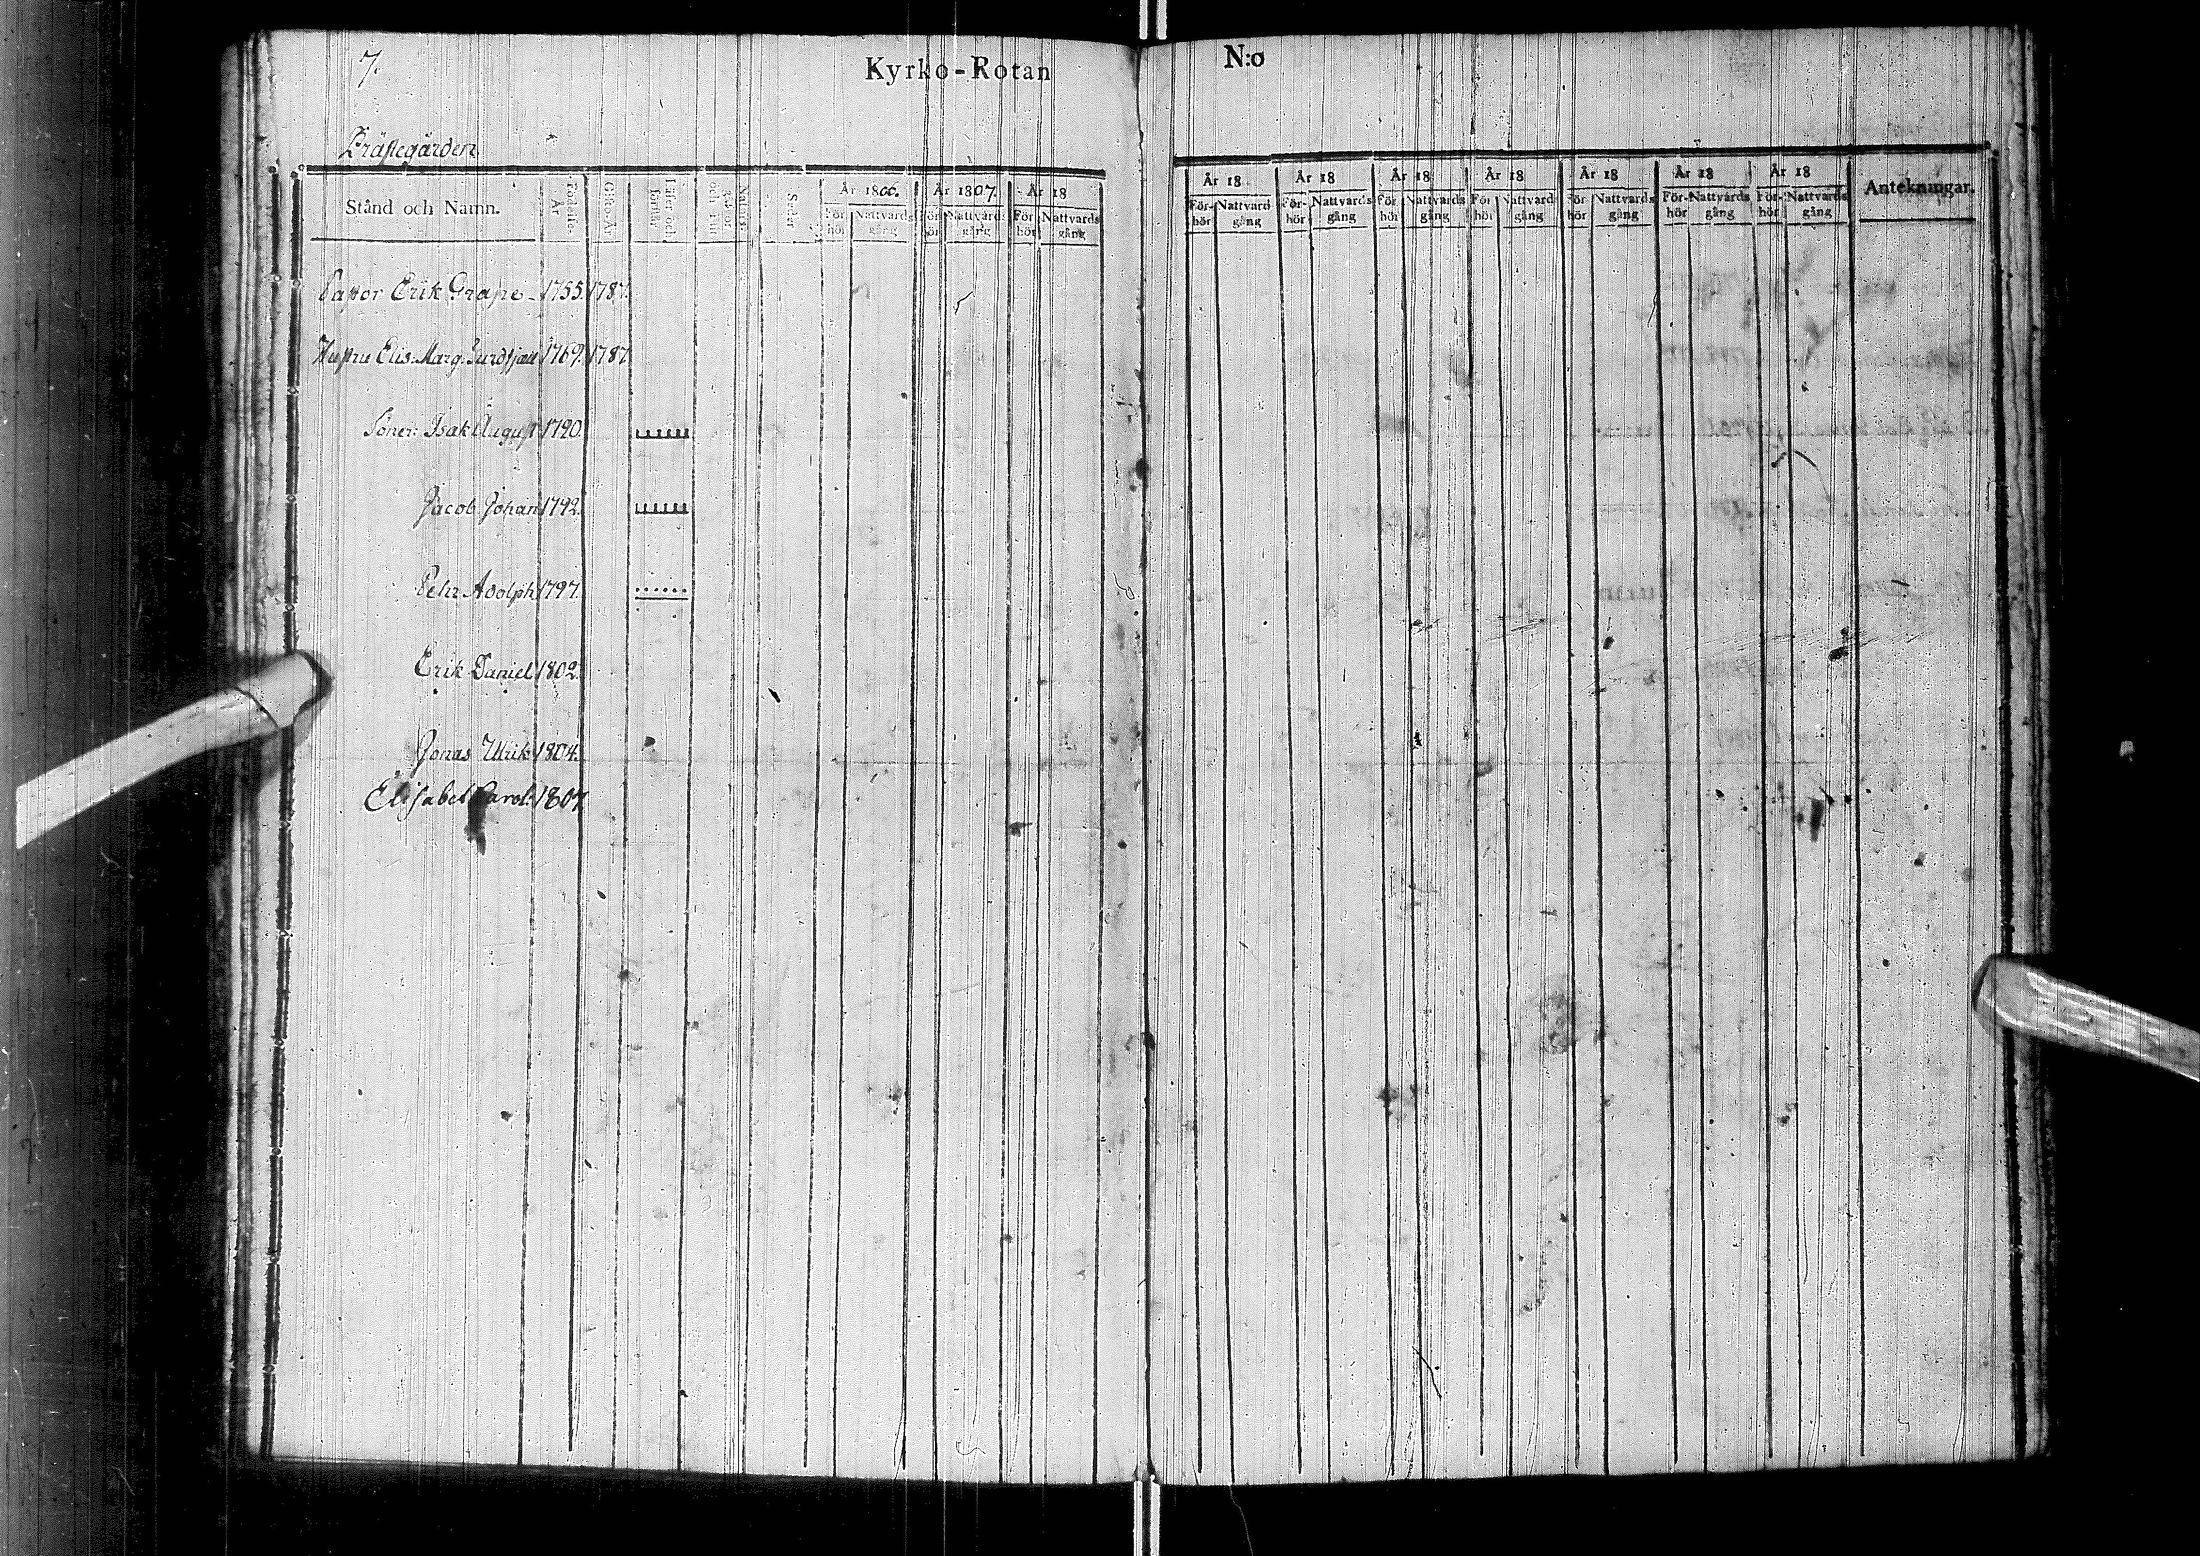 7.
Kyrko-Rotan
N:o
Prästegården
Stånd och Namn.
Födelse-År
Gifto-År
Läser och förstår
Seder
År 1806.
För-hör
Nattvards gång
År 1807.
För-hör
Nattvards gång
År 18
För-hör
Nattvards gång
År 18
För-hör
Nattvard gång
År 18
För-hör
Nattvards gång
År 18
För hör
Nattvards gång
År 18
För hör
Nattvard gång
År 18
För hör
Nattvards gång
År 18
För-hör
Nattvårds gång
År 18
För-hör
Nattvards gång
Antekningar.
Pastor Erik Grape - 1755. 1787.
Hustru Elis. Marg. 1769. 1787
Söner: Isak August 1790.
Jacob Johan 1792.
Pehr Adolph 1797.
Erik Daniel 1802.
Jonas Ulrik 1804.
Elisabet Carol. 1807